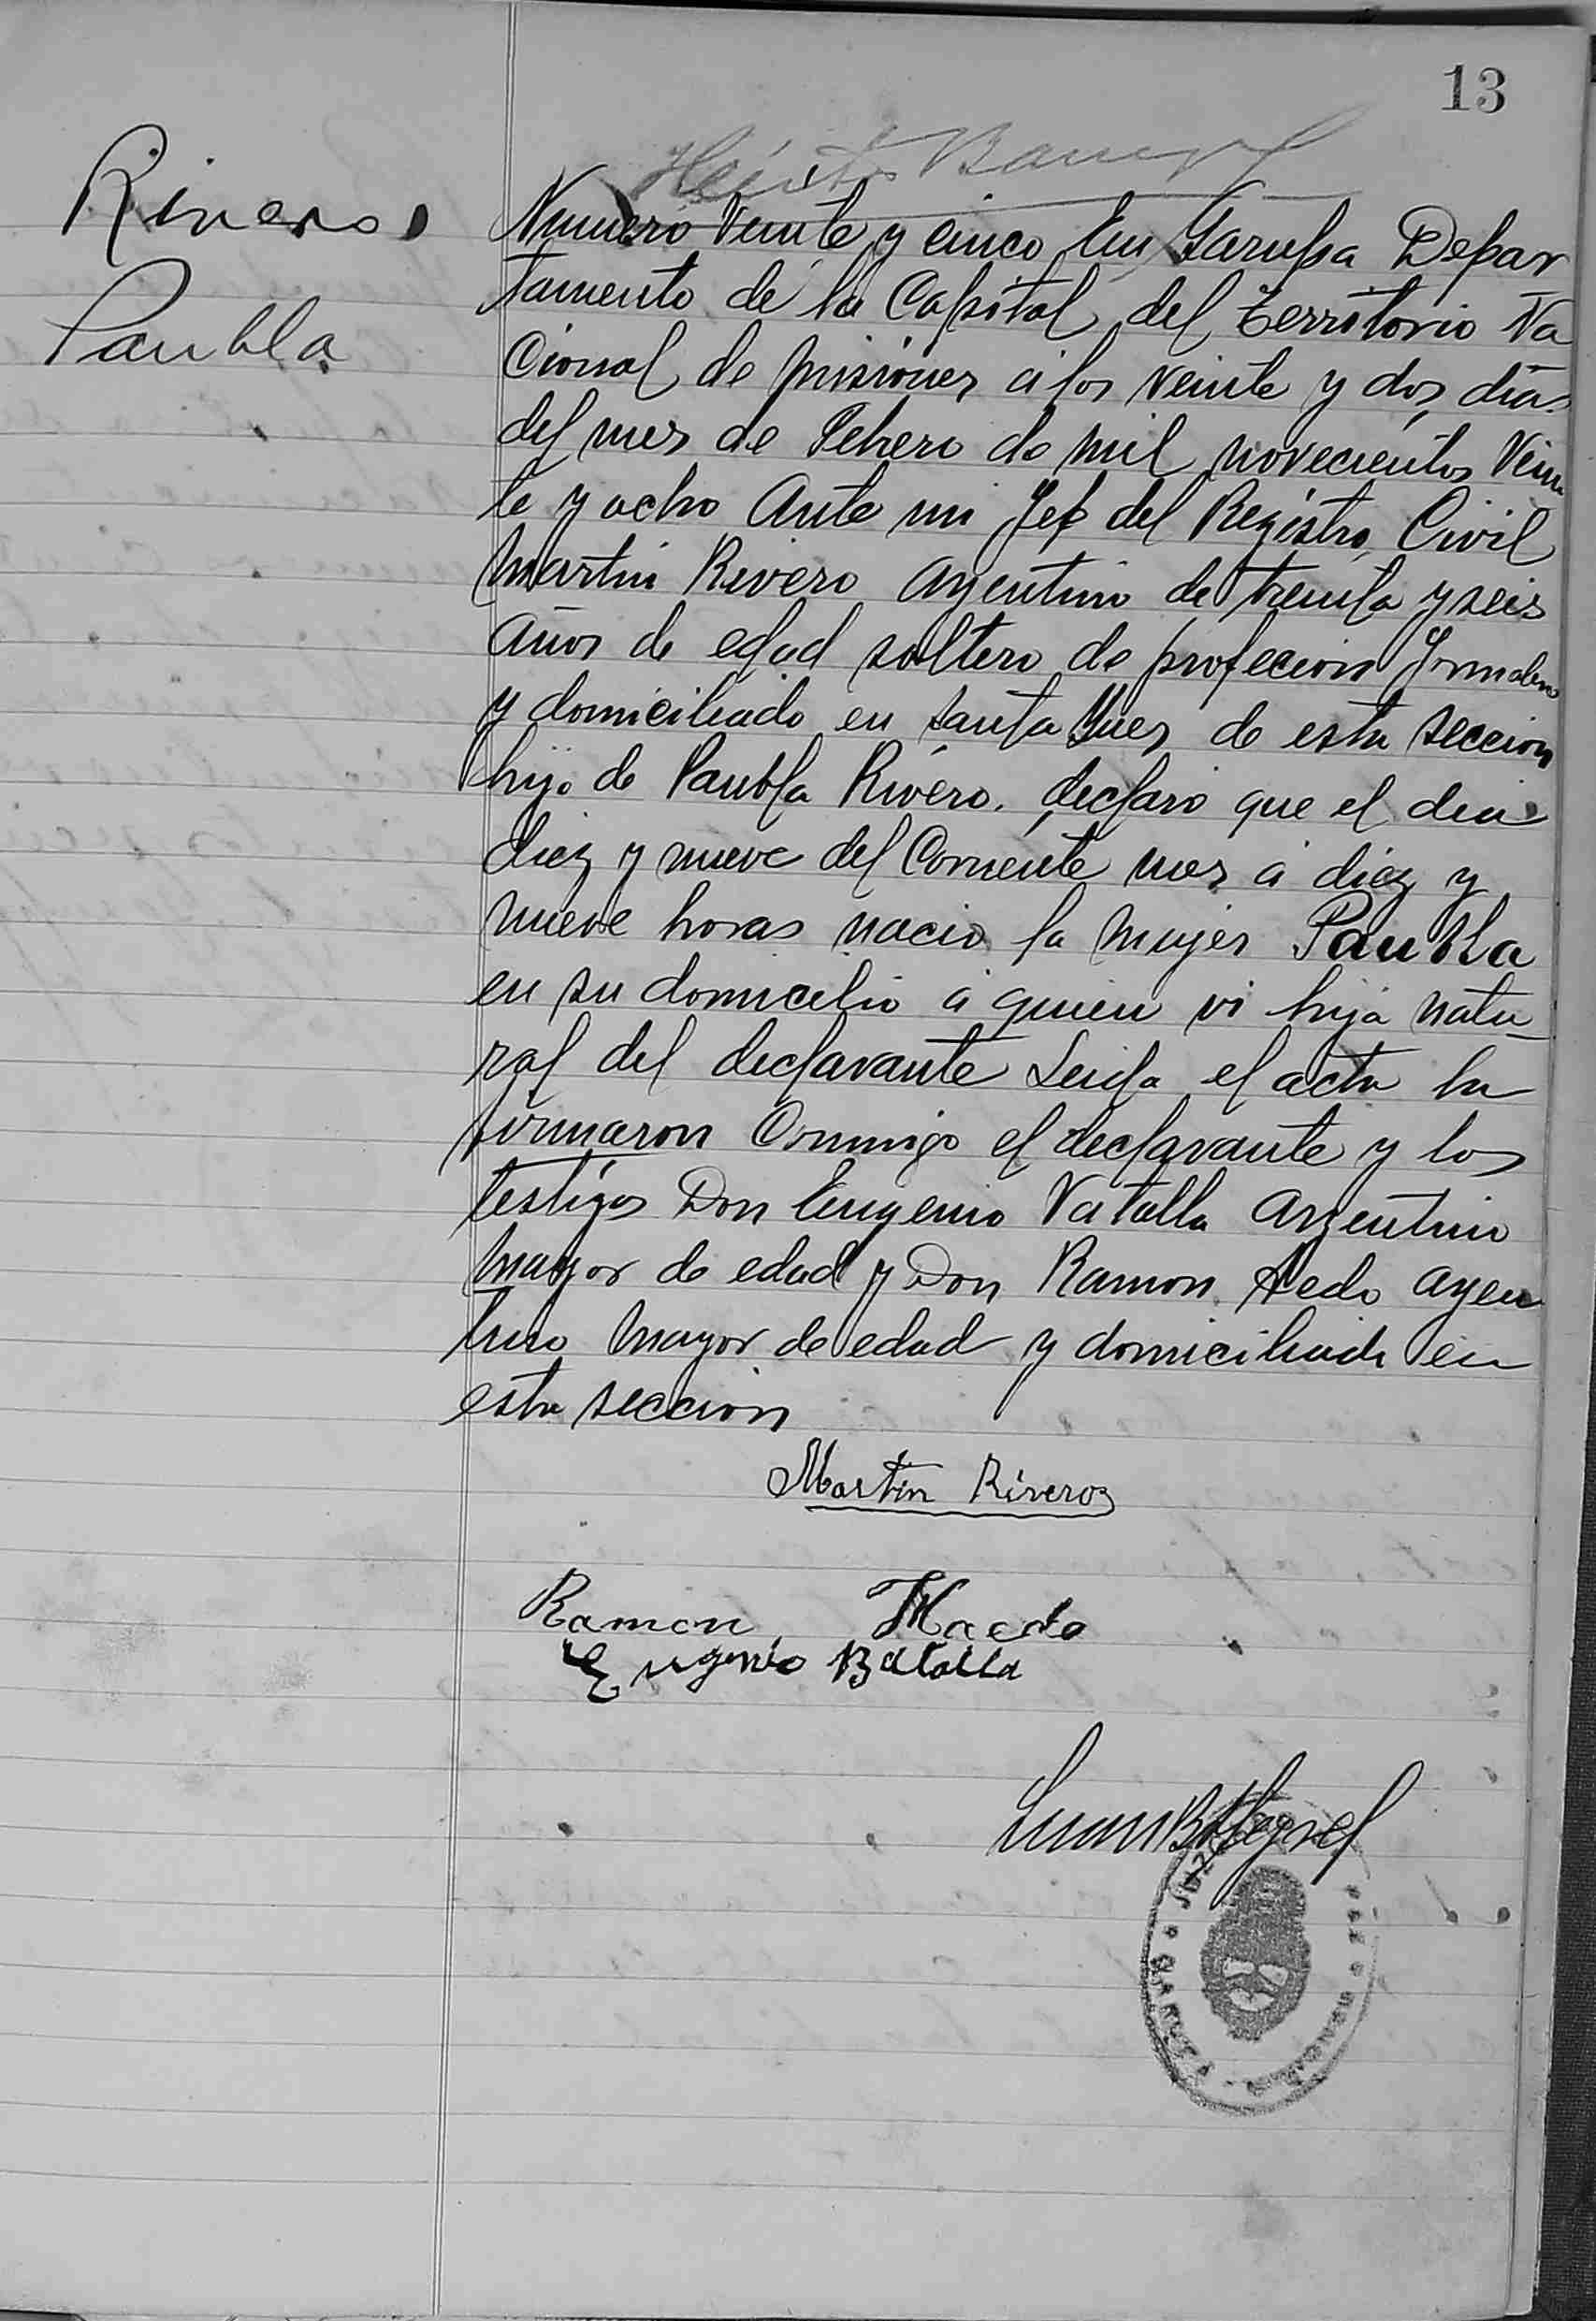 13
Rivero
Paubla
Numero Veinte y cinco En Garupa Depar
tamento de la Capital del Territorio Na
cional de Misiones a los veinte y dos dias
del mes de Febrero de mil novecientos Vein
te y ocho Ante mi Jefe del Registro Civil
Martin Rivero Argentino de treinta y seis
años de edad soltero de profecion Jornalero
y domiciliado en Santa Ynes de esta seccion
hijo de Paubla Rivero. declaro que el dia
diez y nueve del Corriente mes a diez y
nueve horas nacio la mujer Paubla
en su domicilio á quien vi hija natu
ral del declarante Leida el acta la
firmaron Conmigo el declarante y los
testigos Don Eugenio Vatalla Argentino
mayor de edad y Don Ramon Aedo argen
tino mayor de edad y domiciliado en
esta seccion
Martin Riveros
Ramon
Eugenio Batalla
GARUPA